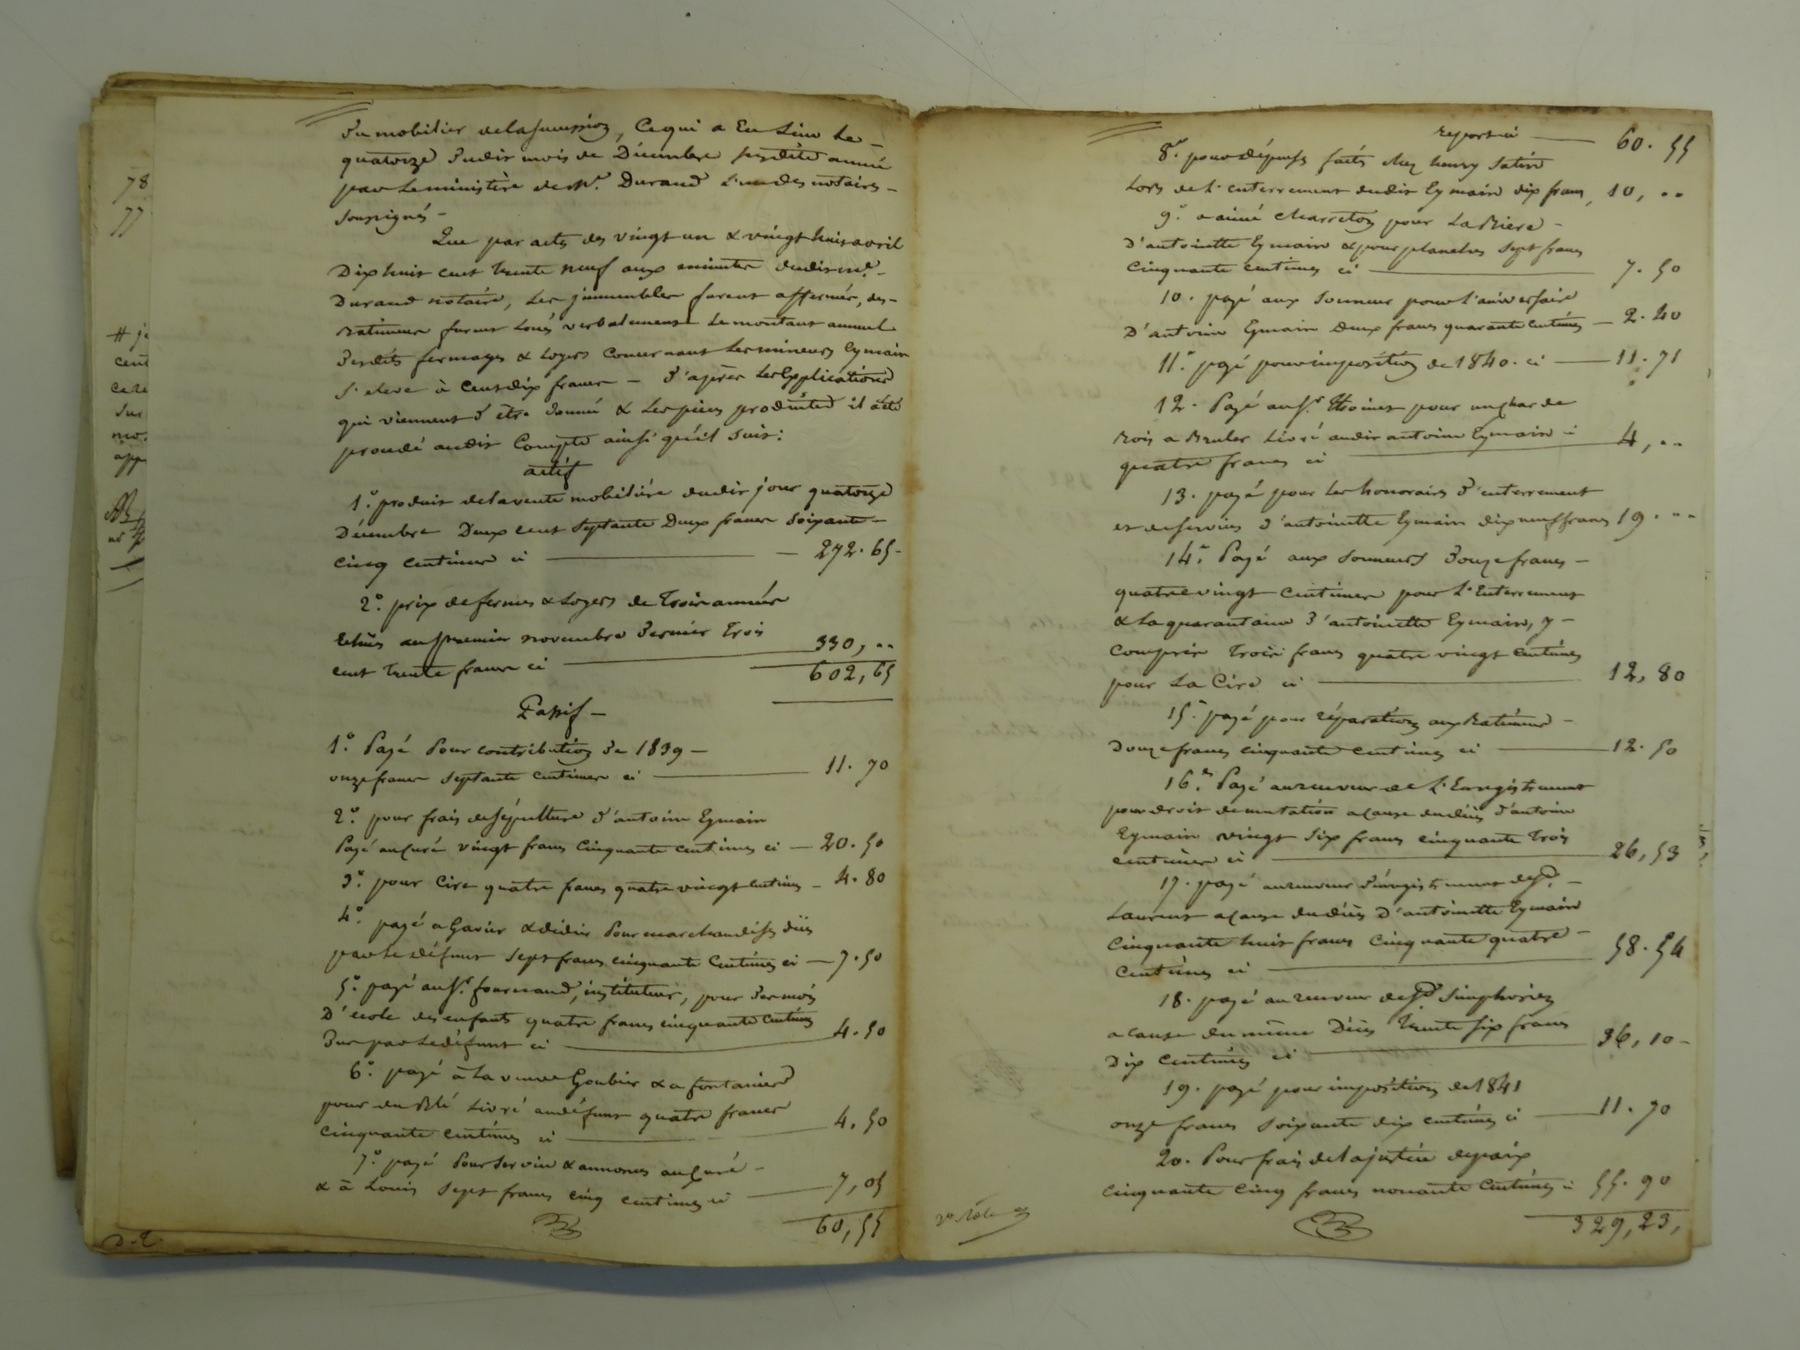 78
77
# je
cent
cere
sur
mo.
app
du mobilier de la succession, Ce qui a Eu Lieu Le -
quatorze dudit mois de Décembre susdite année
par Le ministère de Me. Durand L'un des notaires -
soussignés -
Que par actes des vingt un & vingt huit avril
Dix huit cent trente neuf aux minutes dudit me. -
Durand notaire, Les immeubles furent affermés, des -
Batimens furent Loués verbalement Le montant annuel
desdits fermages & Loyers Concernant Les mineurs Eymain
S'eleve à Cent dix francs - D'après Les Explications
qui viennent d'être donné & Les pièces produites il a été
procedé audit Compte ainsi qu'il suit:
actif
1.° produit de la vente mobilière dudit jour quatorze
Décembre Deux cent septante Deux francs Soixante -
Cinq centimes ci — 272.65 -
2.° prix de fermes & Loyers de Trois années
Echues au premier novembre dernier Trois
cent trente francs ci — 330, ..
602, 65
Passif -
1.° Payé Pour contribution de 1839 -
onze francs septante centimes ci — 11. 70
2.° pour frais de sépulture d'antoine Eymain
Payé au Curé vingt francs Cinquante centimes ci — 20. 50
3.° pour Cire quatre francs quatre vingt centimes - 4. 80
4.° payé a Gavier & Didier Pour marchandises dües
par Le défunt sept francs cinquante Centimes ci — 7. 50
5.° payé au Sr. fournaud, instituteur, pour des mois
D'école des enfants quatre francs cinquante Centimes
Dus par Le défunt ci — 4. 50
6.° payé à la veuve Goubier & a fontanier
pour du Blé Livré au défunt quatre francs
Cinquante centimes ci — 4. 50
7.° payé Pour Service & annonces au Curé -
& à Louis sept francs cinq centimes ci — 7, 05
60, 55
reporté — 60. 55
8.° pour dépenses faites chez henry Satire
Lors de L'enterrement dudit Eymain dix francs, 10, ..
9.° a aimé Charreton pour La Biere -
D'antoinette Eymain & pour planches sept francs
Cinquante centimes ci — 7. 50
10. payé aux Sonneurs pour L'aniversaire
D'antoine Eymain Deux francs quarante Centimes — 2. 40
11.° payé pour imposition de 1840. ci — 11. 71
12. Payé au Sr. pour un char de
Bois a Bruler Livré audit antoine Eymain
quatre francs ci — 4, ..
13. payé pour Les honoraires d'enterrement
et de services d'antoinette Eymain dix neuf francs 19. ..
14.° Payé aux Sonneurs Douze francs -
quatre vingt Centimes pour L'Enterrement
& La quarantaine d'antoinette Eymain, y -
Compris Trois francs quatre vingt Centimes
pour La Cire ci — 12, 80
15.° payé pour réparations aux Batimens -
Douze francs cinquante centimes ci — 12. 50
16.° Payé au receveur de L'Enregistrement
pour droit de mutation a Cause du décès d'antoine
Eymain vingt six francs cinquante trois
centimes ci — 26, 53
17. payé au receveur d'enregistrement de St. -
Laurent a Cause du décès D'antoinette Eymain
Cinquante huit francs Cinquante quatre -
Centimes ci — 58. 54
18. payé au receveur de St Simphorien
a Cause du même Décès trente six francs
Dix Centimes ci — 36, 10 -
19. payé pour imposition de 1841
onze francs soixante dix centimes ci — 11. 70
20. Pour frais de la justice de paix
Cinquante Cinq francs nonante Centimes ci 55. 90
329, 23,